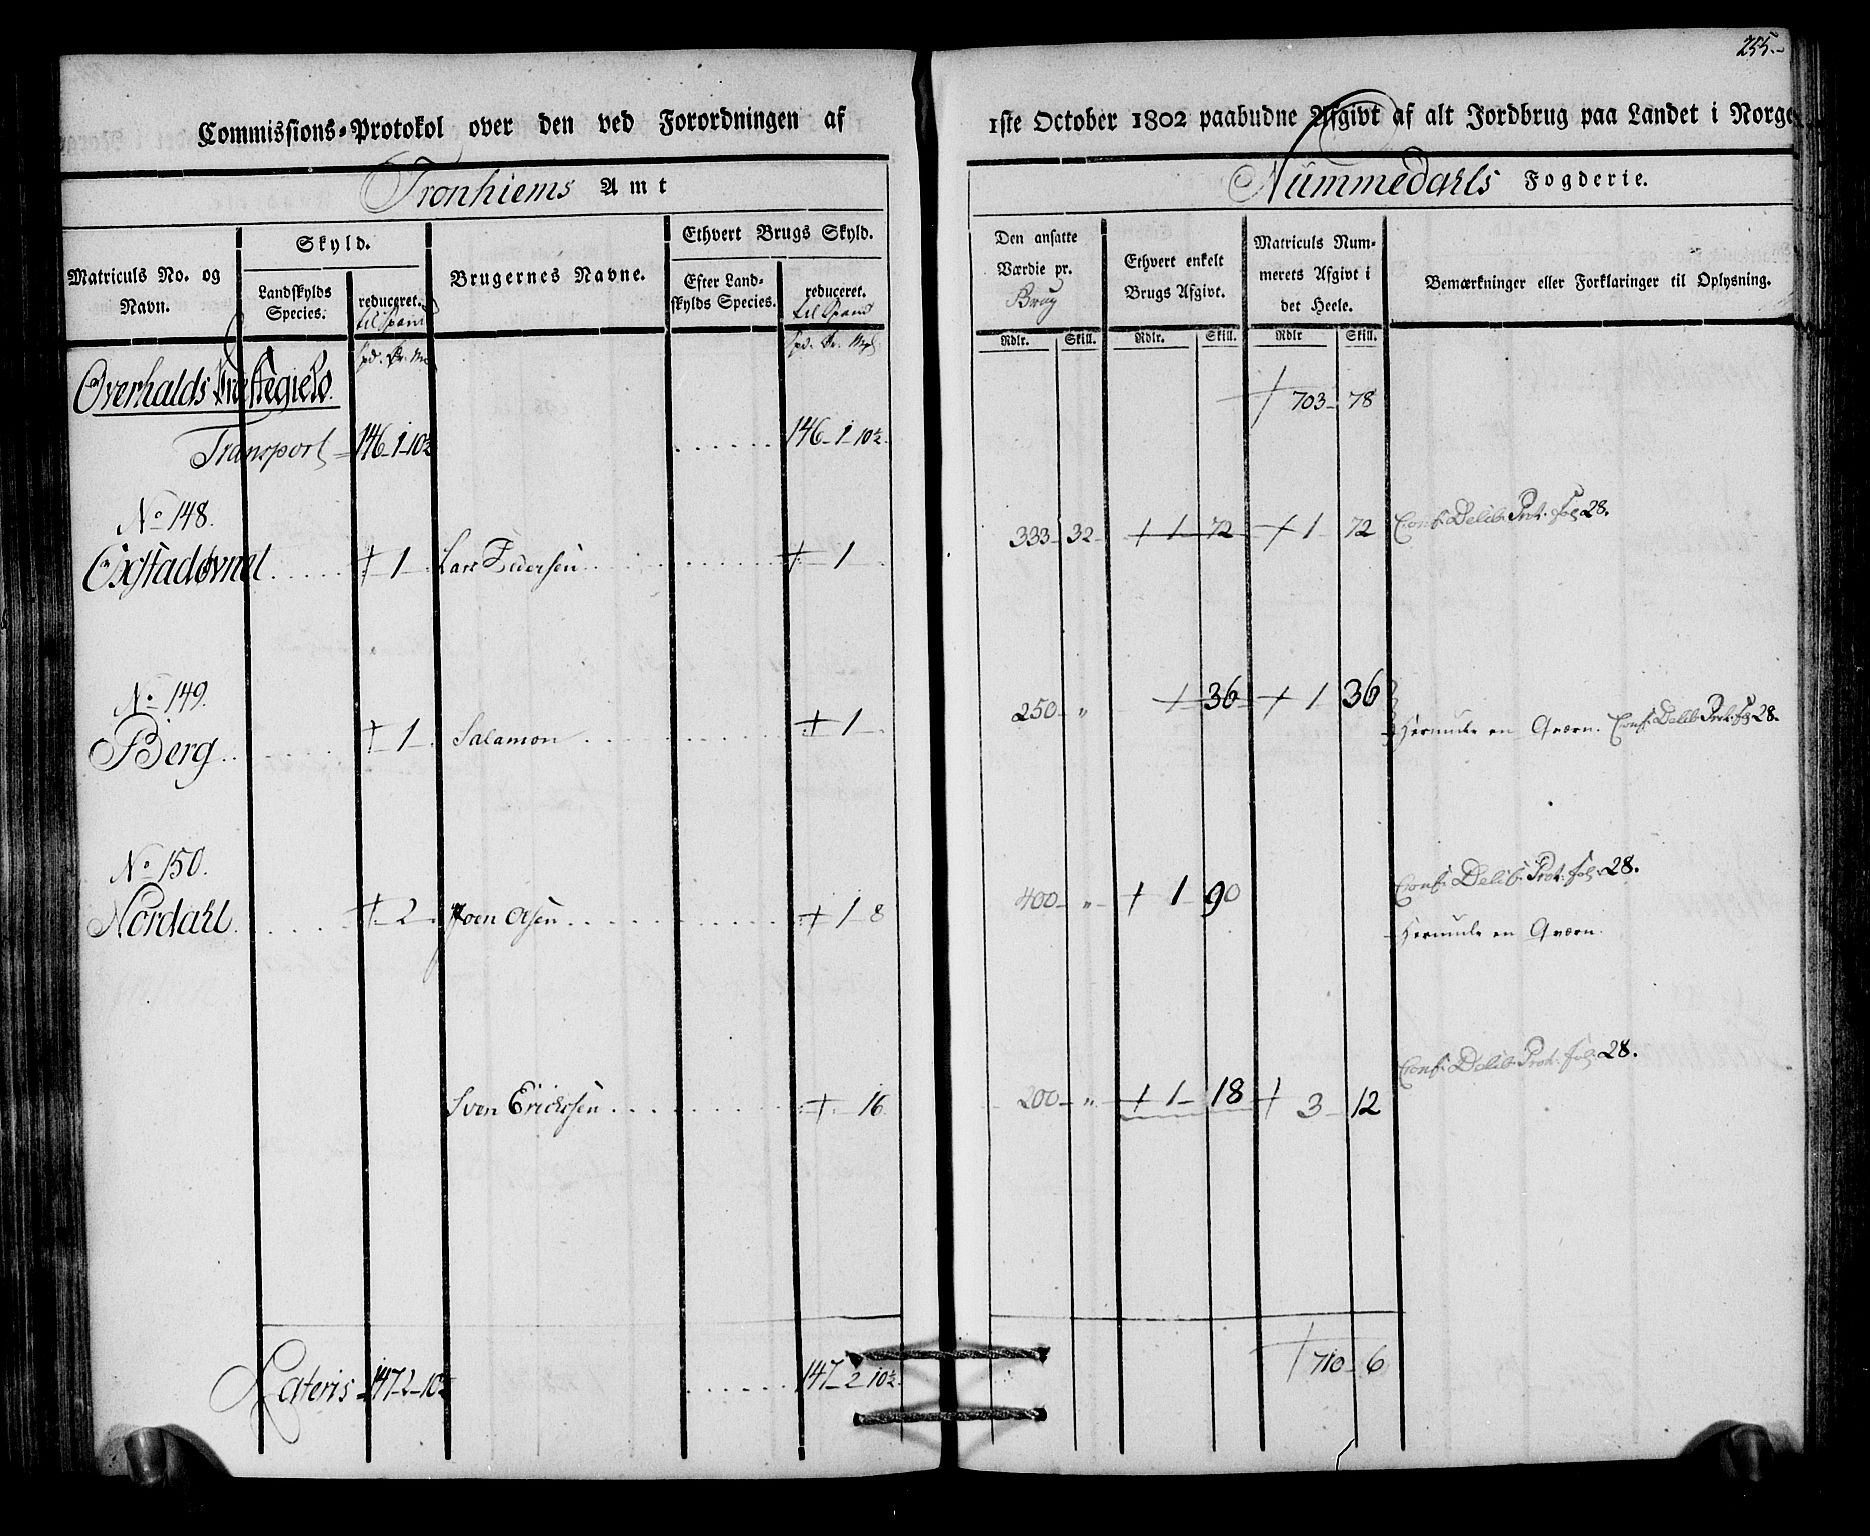 255.
Commissions-Protokol over den ved Forordningen af 1ste October 1802 paabudne Afgivt af alt Jordbrug paa Landet i Norge
Tronhiems Amt Nummedahls Fogderie.
Matriculs No. og Navn.
Skyld.
Landskylds Species.
reduceret. til Spand
Brugernes Navne.
Ethvert Brugs Skyld.
Efter Landskylds Species.
reduceret. til Spand
Den ansatte Værdie pr. Brug
Ethvert enkelt Brugs Afgivt.
Matriculs Nummerets Afgivt i det Heele.
Bemærkninger eller Forklaringer til Oplysning.
Rdlr. Skill. Rdlr. Skill. Rdlr Skill.
Overhalds Præstegield.
703 - 78
Transport - 146 - 1 - 10½ 146 - 1 - 10½
No 148.
333 - 32 - + 1 - 72 + 1 - 72 Conf. Delib. Prot. fol. 28.
+ 1 - Lars Pedersen + 1
No 149.
250 - " + 36 + 1 36
Berg + 1 Salamon + 1 - Herunder en Qværn. Conf. Delib. Prot. fol. 28.
No 150.
400 - " + 1 - 90 Conf. Delib. Prot. fol. 28.
Nordahl + 2 Joen Olsen + 1 - 8 - Herunder en Qværn.
Conf. Delib. Prot. fol. 28.
Sven Ericksen + - 16 200 - " + 1 - 18 + 3 - 12
Lateris 147 - 2 - 10½ 147 - 2 - 10½ 710 - 6